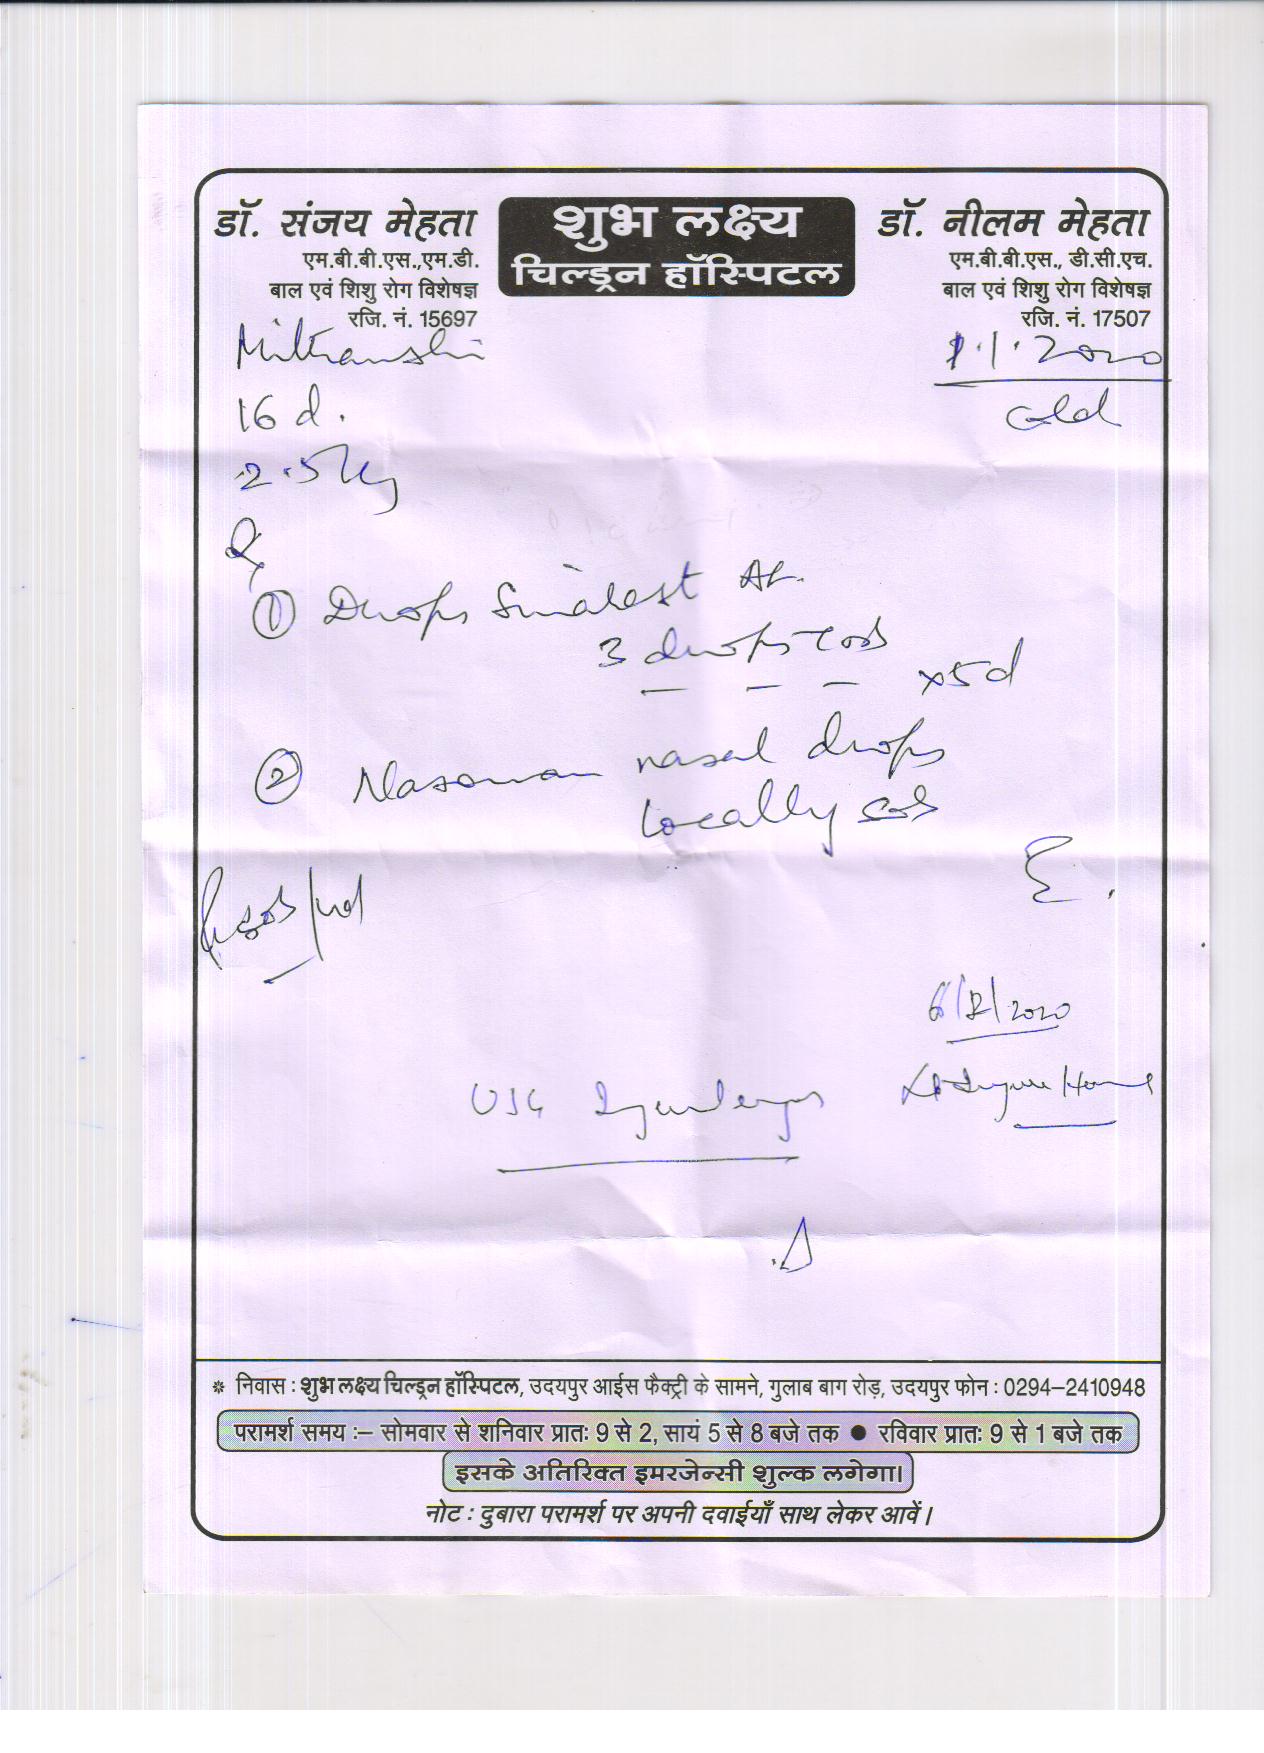 डॉ. संजय मेहता
एम.बी.बी.एस.,एम.डी.
बाल एवं शिशु रोग विशेषज्ञ
रजि. नं. 15697
शुभ लक्ष्य
चिल्ड्रन हॉस्पिटल
डॉ. नीलम मेहता
एम.बी.बी.एस., डी.सी.एच.
बाल एवं शिशु रोग विशेषज्ञ
रजि. नं. 17507
Mitranshi
1.1.2020
16 d.
Cold
2.5 kg
① Drops Sinarest AF.
3 drops
x5d
② nasal drops
locally
2020
USG
निवास : शुभ लक्ष्य चिल्ड्रन हॉस्पिटल, उदयपुर आईस फैक्ट्री के सामने, गुलाब बाग रोड़, उदयपुर फोन : 0294-2410948
परामर्श समय :– सोमवार से शनिवार प्रातः 9 से 2, सायं 5 से 8 बजे तक ● रविवार प्रातः 9 से 1 बजे तक
इसके अतिरिक्त इमरजेन्सी शुल्क लगेगा।
नोट : दुबारा परामर्श पर अपनी दवाईयाँ साथ लेकर आवें।